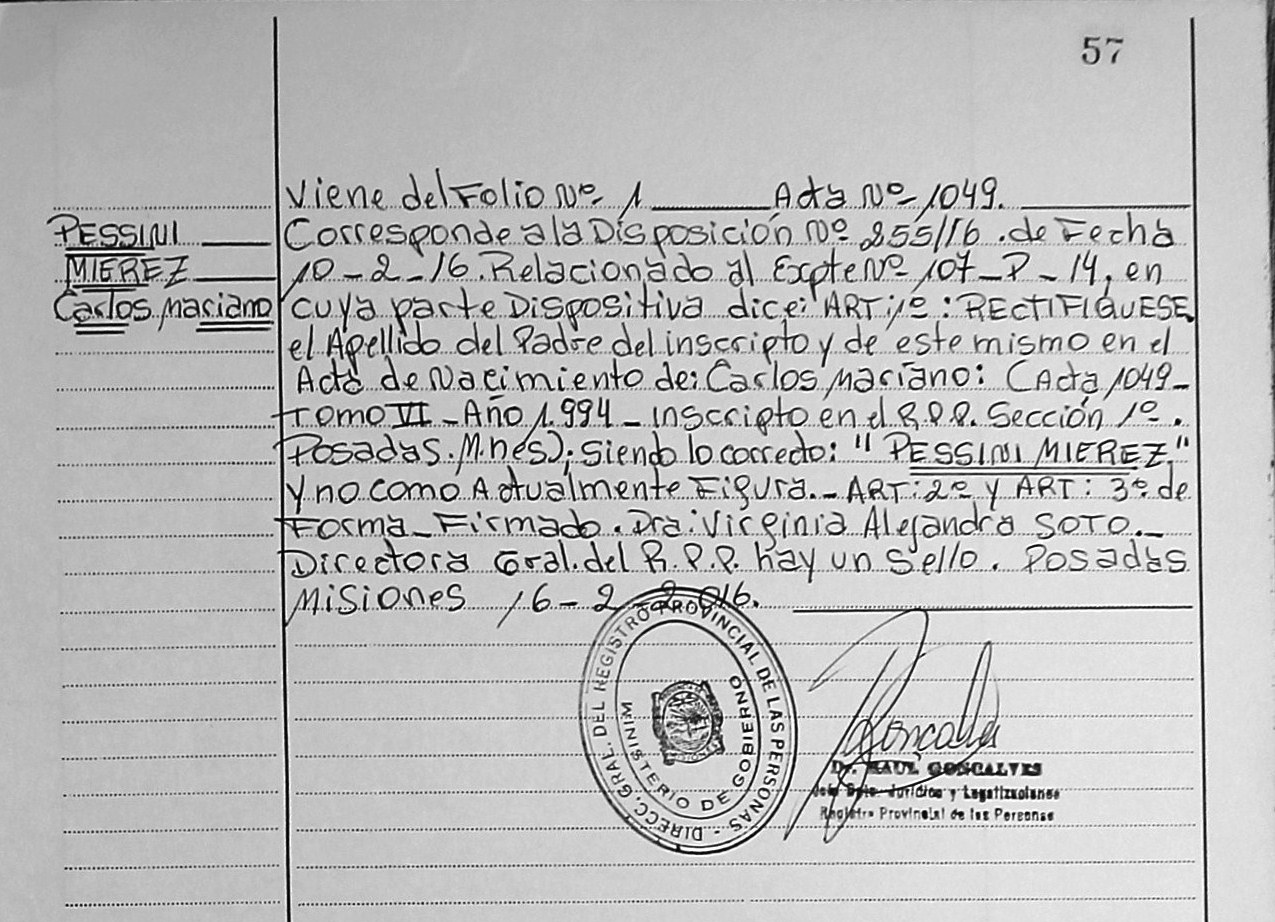 57
Viene del Folio Nº 1 Acta Nº 1049.
PESSINI
MIEREZ
Carlos Mariano
Corresponde a la Disposición Nº 255/16 . de Fecha
10-2-16. Relacionado al Expte Nº 107-P-14, en
cuya parte Dispositiva dice: ART: 1º : RECTIFIQUESE
el Apellido del Padre del inscripto y de este mismo en el
Acta de Nacimiento de: Carlos Mariano: (Acta 1049-
Tomo VI - Año 1.994 - inscripto en el R.P.P. Sección 1º.
Posadas. M.nes); siendo lo correcto: "PESSINI MIEREZ"
y no como Actualmente Figura.- ART: 2º y ART: 3º de
Forma - Firmado. Dra: Virginia Alejandra SOTO.-
Directora Gral. del R.P.P. hay un Sello. Posadas
Misiones 16-2-2016.
DIRECC. GRAL. DEL REGISTRO PROVINCIAL DE LAS PERSONAS -
MINISTERIO DE GOBIERNO
Dr. RAUL GONCALVES
Jefe Dpto. Jurídico y Legalizaciones
Registro Provincial de las Personas